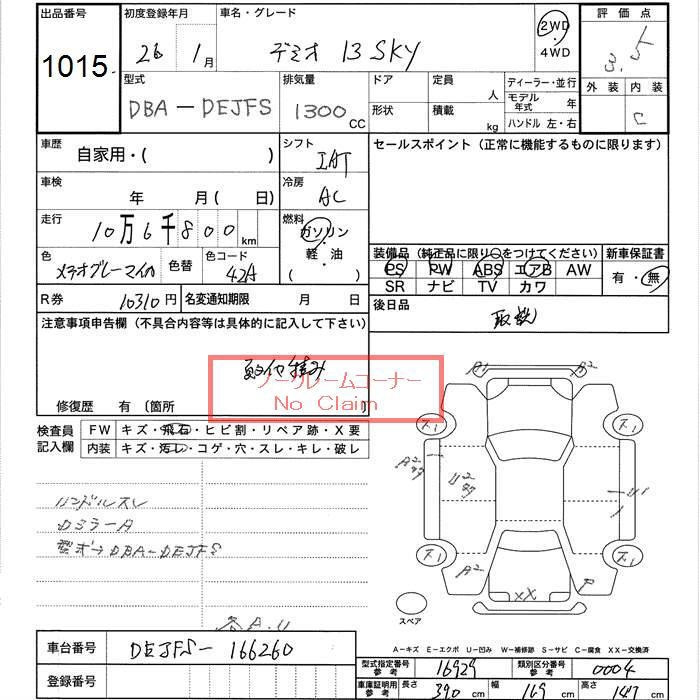 出品番号 初度登録年月 車名・グレード 評価点
1015 26年 1月 デミオ 13 SKY 2WD・4WD 3.5
型式 排気量 ドア 定員 人 ディーラー・並行 外装 内装
DBA-DEJFS 1300 CC 形状 積載 kg モデル年式 年 ハンドル 左・右 C
車歴 自家用・( ) シフト IAT セールスポイント（正常に機能するものに限ります）
車検 年 月( 日) 冷房 AC
走行 10万6千800 km 燃料 ガソリン・軽油 ( )
色 メテオグレーマイカ 色替 色コード 42A
装備品（純正品に限り○をつけてください） 新車保証書
PS PW ABS エアB AW 有・無
SR ナビ TV カワ
R券 10310円 名変通知期限 月 日 後日品
注意事項申告欄（不具合内容等は具体的に記入して下さい） 取説
ノークレームコーナー
No Claim
修復歴 有 〔箇所 〕
検査員記入欄 FW キズ・飛石・ヒビ割・リペア跡・X要
内装 キズ・汚レ・コゲ・穴・スレ・キレ・破レ
ハンドルスレ
DミラーA
型式→DBA-DEJFS
各A.U
A1 A2
A2 U2 U1
A2 XX P
スペア
A－キズ E－エクボ U－凹み W－補修跡 S－サビ C－腐食 XX－交換済
車台番号 DEJFS-166260
登録番号
型式指定番号 参考 16929 類別区分番号 参考 0004
車庫証明用 参考 長さ 390 cm 幅 169 cm 高さ 147 cm